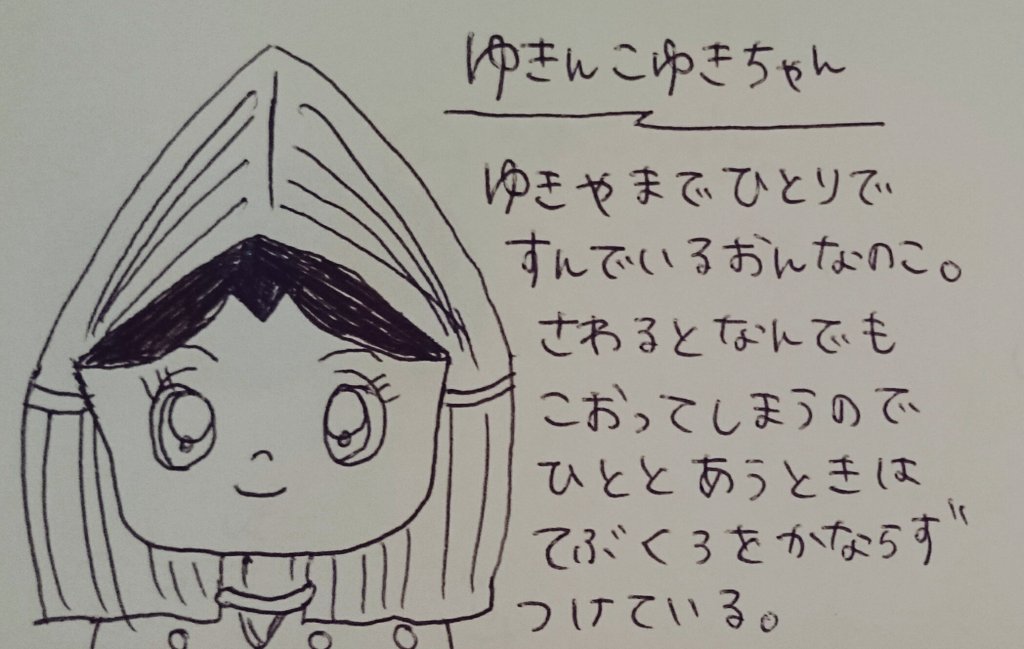 ゆきんこゆきちゃん
ゆきやまでひとりで
すんでいるおんなのこ。
さわるとなんでも
こおってしまうので
ひととあうときは
てぶくろをかならず
つけている。